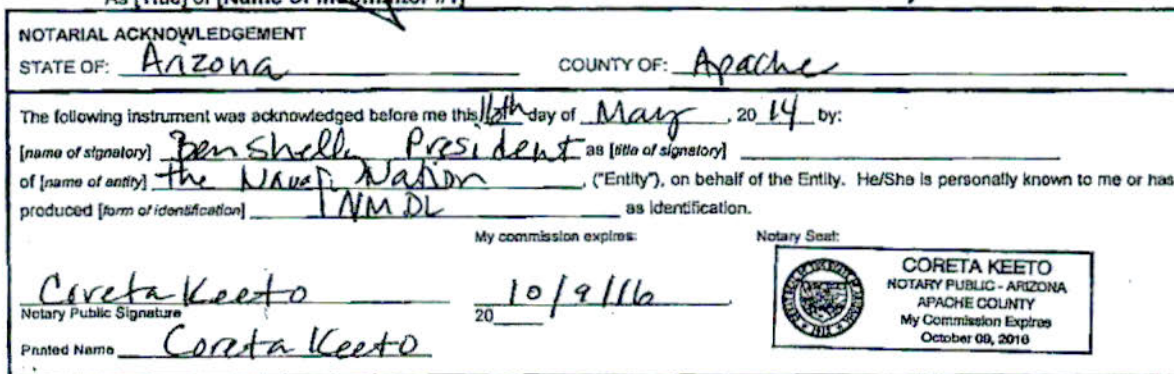 As [Title] of [Name of Indemnitor #1]
NOTARIAL ACKNOWLEDGEMENT
STATE OF: Arizona COUNTY OF: Apache
The following instrument was acknowledged before me this 16th day of May, 2014 by:
[name of signatory] Ben Shelly President as [title of signatory]
of [name of entity] the Navajo Nation, ("Entity"), on behalf of the Entity. He/She is personally known to me or has
produced [form of identification] NM DL as identification.
My commission expires: Notary Seal:
Coreta Keeto 10/9/16
Notary Public Signature 20
Printed Name Coreta Keeto
CORETA KEETO
NOTARY PUBLIC - ARIZONA
APACHE COUNTY
My Commission Expires
October 09, 2016